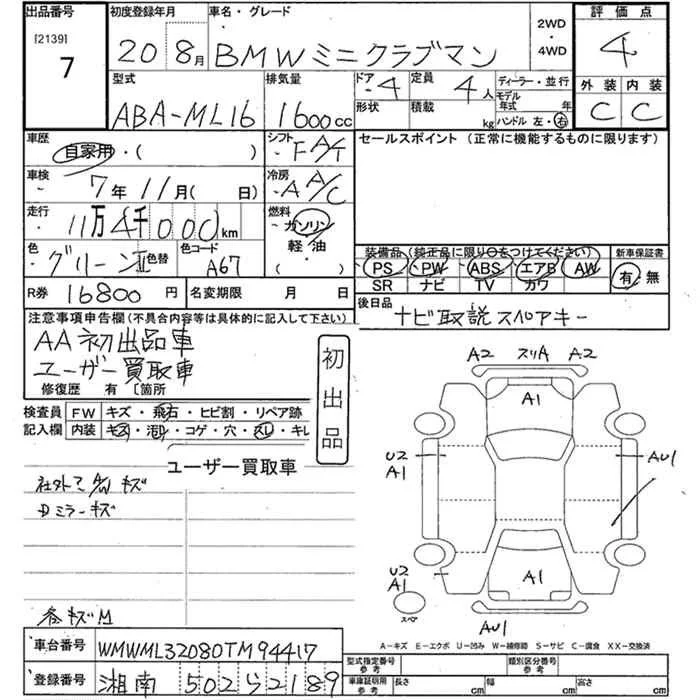 出品番号 初度登録年月 車名・グレード 2WD・4WD 評価点
[2139] 7 20 8月 BMWミニクラブマン 4
型式 排気量 ドア 定員 ディーラー・並行 外装 内装
ABA-ML16 1600cc ・4 4人 モデル年式 年 C C
形状 積載 kg ハンドル 左・右
車歴 自家用・( ) シフト ・FA/T セールスポイント (正常に機能するものに限ります)
車検 7年11月( 日) 冷房 ・AA/C
走行 11万4千000km 燃料 ガソリン
色 ・グリーンⅡ 色替 色コード A67 軽・油 ・( )
装備品 (純正品に限り○をつけてください) 新車保証書
PS PW ABS エアB AW 有・無
SR ナビ TV カワ
R券 16800円 名変期限 月 日 後日品
ナビ取説 スペアキー
注意事項申告欄(不具合内容等は具体的に記入して下さい)
AA初出品車
ユーザー買取車
修復歴 有 〔箇所
初出品
検査員記入欄 FW キズ・飛石・ヒビ割・リペア跡
内装 キズ・汚レ・コゲ・穴・スレ・キレ
ユーザー買取車
キズ
ミラーキズ
キズM
A2 スリA A2
A1
U2 A1 AU1
U2 A1 A1
スペア
AU1
A－キズ E－エクボ U－凹み W－補修跡 S－サビ C－腐食 XX－交換済
車台番号 WMWML32080TM94417
型式指定番号 参考 類別区分番号 参考
登録番号 湘南 502 さ 2189
車庫証明用 参考 長さ cm 幅 cm 高さ cm